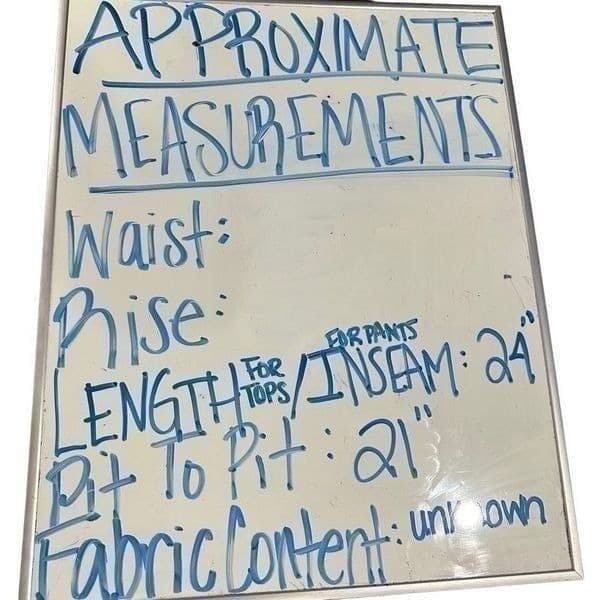 APPROXIMATE
MEASUREMENTS
Waist:
Rise:
LENGTH FOR TOPS / INSEAM FOR PANTS: 24"
Pit To Pit: 21"
Fabric Content: unknown